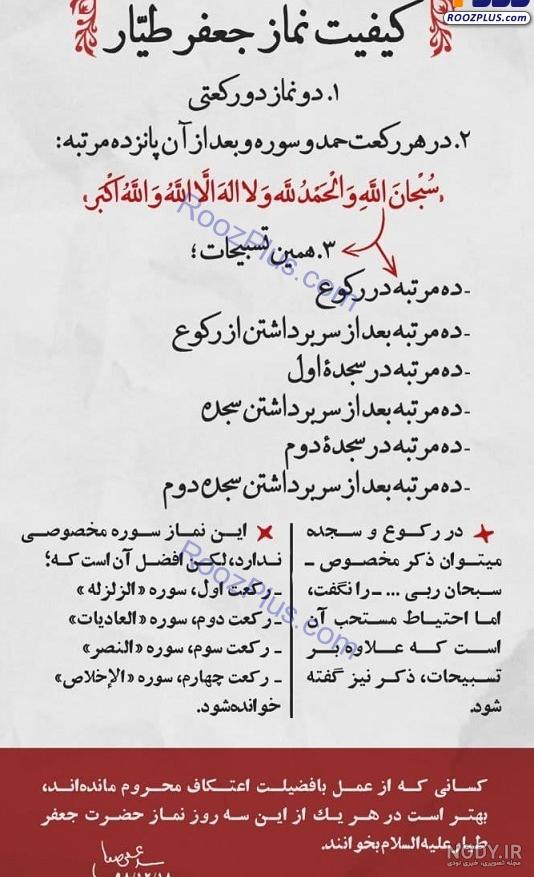 ROOZPLUS.com
کیفیت نماز جعفر طیّار
۱. دو نماز دو رکعتی
۲. در هر رکعت حمد و سوره و بعد از آن پانزده مرتبه:
سُبْحانَ اللَّهِ وَالْحَمْدُ للَّه وَ لا الهَ الَّا اللَّهُ وَ اللَّهُ اَكْبَر؛
۳. همین تسبیحات؛
- ده مرتبه در رکوع
- ده مرتبه بعد از سر برداشتن از رکوع
- ده مرتبه در سجدهٔ اول
- ده مرتبه بعد از سر برداشتن سجده
- ده مرتبه در سجدهٔ دوم
- ده مرتبه بعد از سر برداشتن سجده دوم
در رکوع و سجده
میتوان ذکر مخصوص -
سبحان ربی ... - را نگفت،
اما احتیاط مستحب آن
است که علاوه بر
تسبیحات، ذکر نیز گفته
شود.
این نماز سوره مخصوصی
ندارد، لکن افضل آن است که؛
- رکعت اول، سوره «الزلزله»
- رکعت دوم، سوره «العادیات»
- رکعت سوم، سوره «النصر»
- رکعت چهارم، سوره «الإخلاص»
خوانده شود.
RoozPlus.com
RoozPlus.com
کسانی که از عمل بافضیلت اعتکاف محروم مانده‌اند،
بهتر است در هر یك از این سه روز نماز حضرت جعفر
طیار علیه‌السلام بخوانند.
۹۸/۱۲/۱۸
NGDY.IR
مجله تصویری، خبری نودی